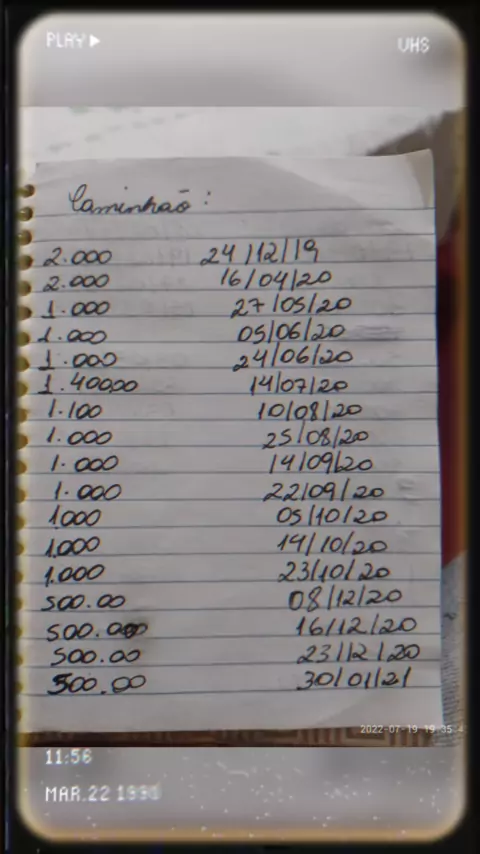 PLAY ▶ VHS
Caminhão:
2.000 24/12/19
2.000 16/04/20
1.000 27/05/20
1.000 05/06/20
1.000 24/06/20
1.40000 14/07/20
1.100 10/08/20
1.000 25/08/20
1.000 14/09/20
1.000 22/09/20
1000 05/10/20
1.000 14/10/20
1.000 23/10/20
500.00 08/12/20
500.00 16/12/20
500.00 23/12/20
500.00 30/01/21
2022-07-19 19:35:4
11:56
MAR.22 1990